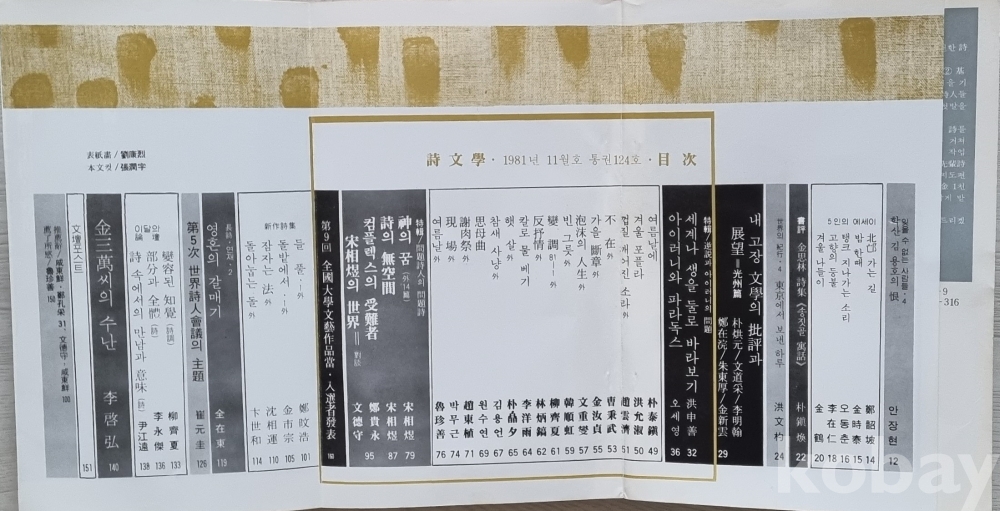 詩文學 · 1981년 11월호 통권124호 · 目次
表紙畵/劉康烈
本文컷/張潤宇
잊을 수 없는 사람들·4
학산 김용호의 恨
안장현 12
5인의 에세이
北邙 가는 길
鄭韶坡 14
밤 한때
金時泰 15
탱크 지나가는 소리
오동춘 16
고향의 등불
李在仁 18
겨울 나들이
金鶴 20
書評
金思林 詩集 《송짓골 寓話》
朴鎭煥 22
世界의 紀行·4
東京에서 보낸 하루
洪文杓 24
내 고장 文學의 批評과
展望=光州篇
朴烘元/文道采/李明翰
鄭在浣/朱東厚/金新雲
29
特輯/逆說과 아이러니의 問題
세계나 생을 둘로 바라보기
洪申善 32
아이러니와 파라독스
오세영 36
여름날에
朴泰鎭 49
겨울 포플라
洪允淑 50
껍질 깨어진 소라 外
趙雲濟 51
不在 外
曺秉武 53
가을 斷章 外
金汝貞 55
泡沫의 人生 外
文重燮 57
빈 그릇 外
韓順虹 59
變調·81 外
柳齊夏 60
反抒情 外
林炳鎬 61
칼로 물 베기
李洋雨 64
햇살 外
朴晶夕 66
아침 사냥 外
김용언 67
思母曲
원수연 69
謝肉祭 外
趙東植 71
現場 外
박무근 74
여름날 外
魯珍善 76
特輯/問題詩人의 問題詩
神의 꿈 (外14篇)
宋相煜 79
詩의 無空間
宋相煜 87
컴플렉스의 受難者
鄭貴永
宋相煜의 世界= 對談
文德守 95
第9回 全國大學文藝作品當·入選者發表
新作詩集
들풀 外
鄭旼浩 101
돌밭에서 外
金市宗 105
잠자는 法 外
沈相運 110
돌아눕는 돌 外
卞世和 114
長詩·연재·2
영혼의 갈매기
金在東 119
第5次 世界詩人會議의 主題
崔元圭 126
이달의 詩壇
變容된 知覺
柳齊夏 133
部分과 全體
李永傑 136
詩 속에서의 만남과 意味
尹江遠 138
金三萬씨의 수난
李啓弘 140
文壇포스트
151